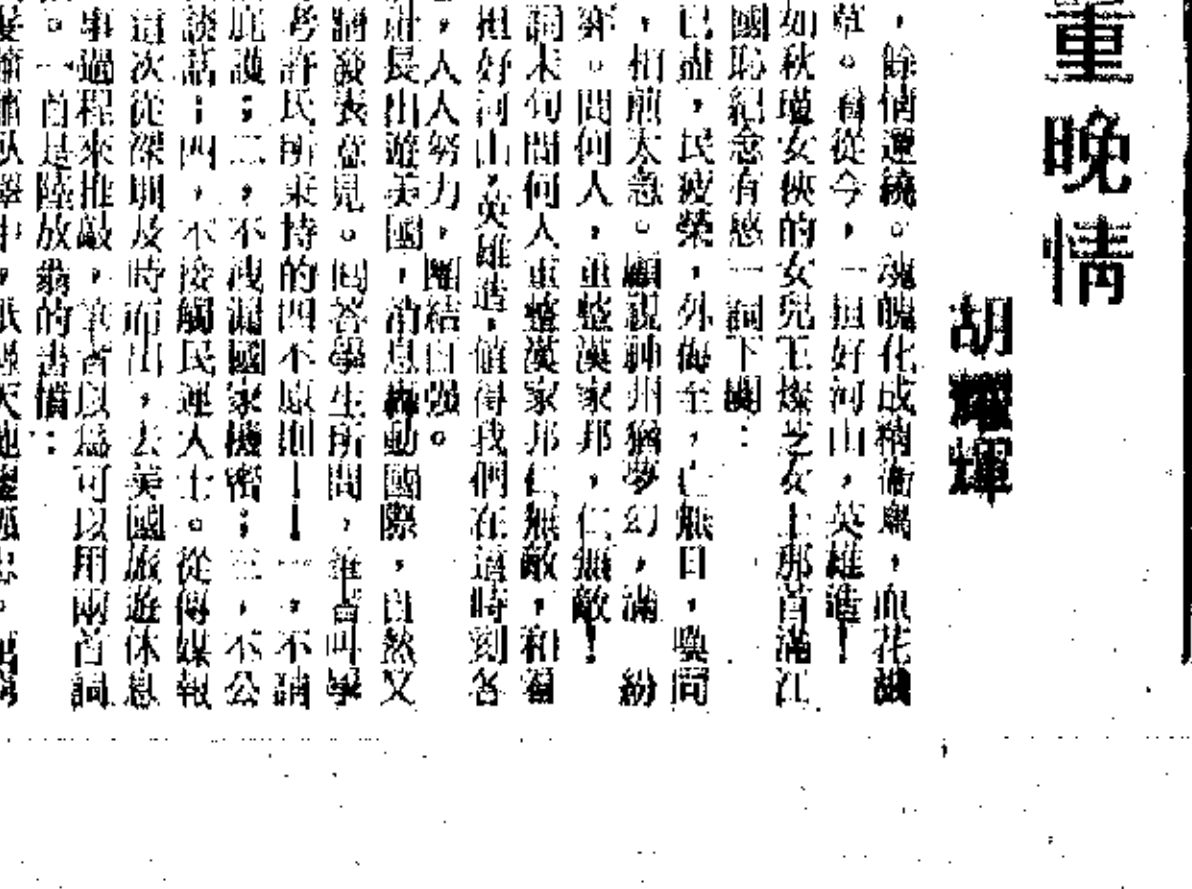 重晚情
胡耀輝
，餘情遲繞。魂魄化成精衛鳥，血花濺
草。看從今，一担好河山，英雄造！
如秋瑾女俠的女兒王燦芝女士那首滿江
國恥紀念有感一詞下闋：
已盡，民疲，外侮至，亡無日，喚同
，相煎太急。顧說神州猶夢幻，滿 紛
弈。問何人，重整漢家邦，仁無敵！
詞末句問何人重整漢家邦仁無敵，和
担好河山，英雄造，值得我們在這時刻各
，人人努力，團結自强。
社長出遊美國，消息轟動國際，自然又
發表意見。囘答學生所問，筆者叫學
考許民所秉持的四不原則——一，不請
庇護；二，不洩漏國家機密；三，不公
談話；四，不接觸民運人士。從傳媒報
這次從深圳及時而出，去美國旅遊休息
事過程來推敲，筆者以爲可以用兩首詞
。一首是陸放翁的書憤：